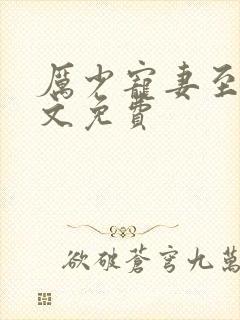 厲少寵妻至
文免費
欲破蒼穹九萬